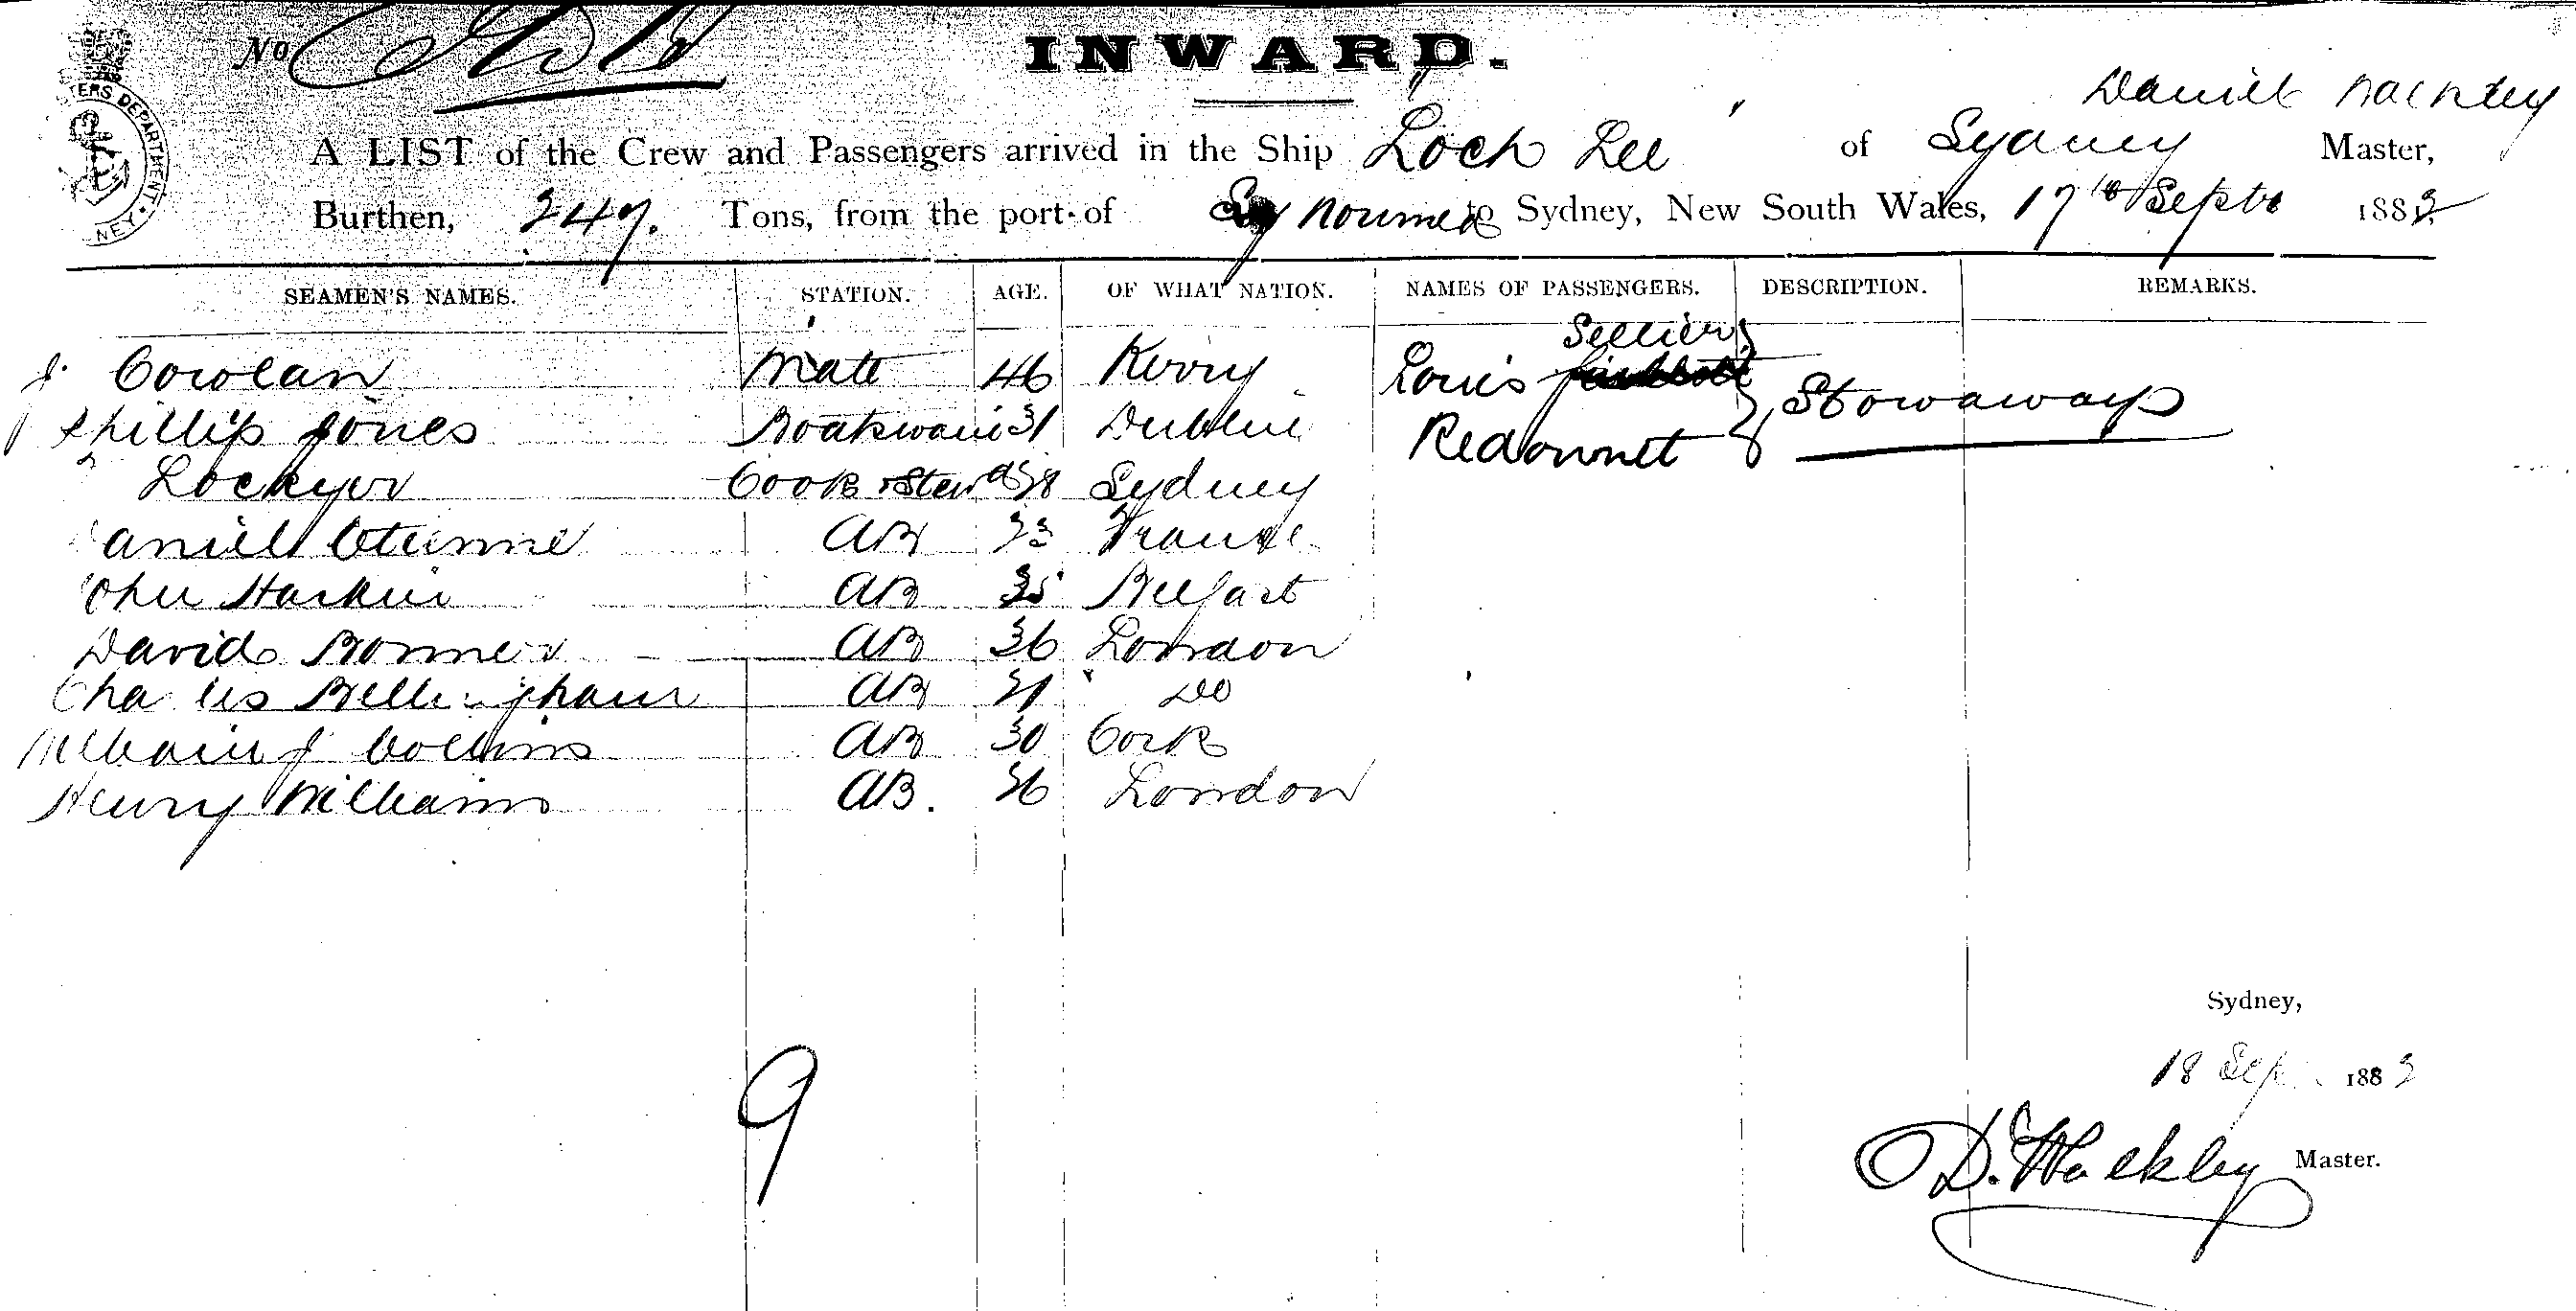 No
INWARD.
Daniel
A LIST of the Crew and Passengers arrived in the Ship Loch Lee of Sydney Master,
Burthen, 247. Tons, from the port of Noumea to Sydney, New South Wales, 17th Septr 1883
SEAMEN'S NAMES. STATION. AGE. OF WHAT NATION. NAMES OF PASSENGERS. DESCRIPTION. REMARKS.
Sellier
J. Mate 46 Kerry Louis Stowaways
Phillip Jones Boatswain 31 Dublin Redonnet
Lockyer Cook & Stewd 28 Sydney
aniel Etienne AB 23 France
ohn Harkin AB 35 Belfast
David Bonner AB 36 London
Cha les Bellingham AB 21 Do
William J Collins AB 30 Cork
Henry Williams AB. 26 London
Sydney,
18 Sep 1883
9
D. Master.